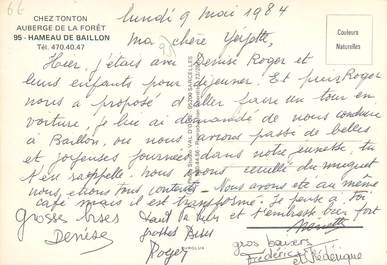 66
CHEZ TONTON
AUBERGE DE LA FORÊT
95 - HAMEAU DE BAILLON
Tél. 470.40.47
Couleurs
Naturelles
lundi 9 mai 1984
Ma chère
Hier, j'étais avec Denise Roger et
leurs enfants pour déjeuner. Et puis Roger
nous a proposé d'aller faire un tour en
voiture, je lui ai demandé de nous conduire
à Baillon, où nous avons passé de belles
et joyeuses journées dans notre jeunesse, tu
t'en rappelle. Nous avons cueilli du muguet
nous étions tous contents - Nous avons été au même
café mais il est transformé. Je pense à Toi
grosses bises
Denise
tant et t'embrasse bien fort
grosses Bises
Roger
gros baisers
Frédéric
et Frédérique